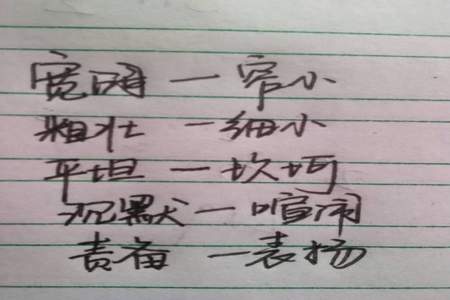 宽阔一窄小
粗壮一细小
平坦一坎坷
沉默一喧闹
责备一表扬